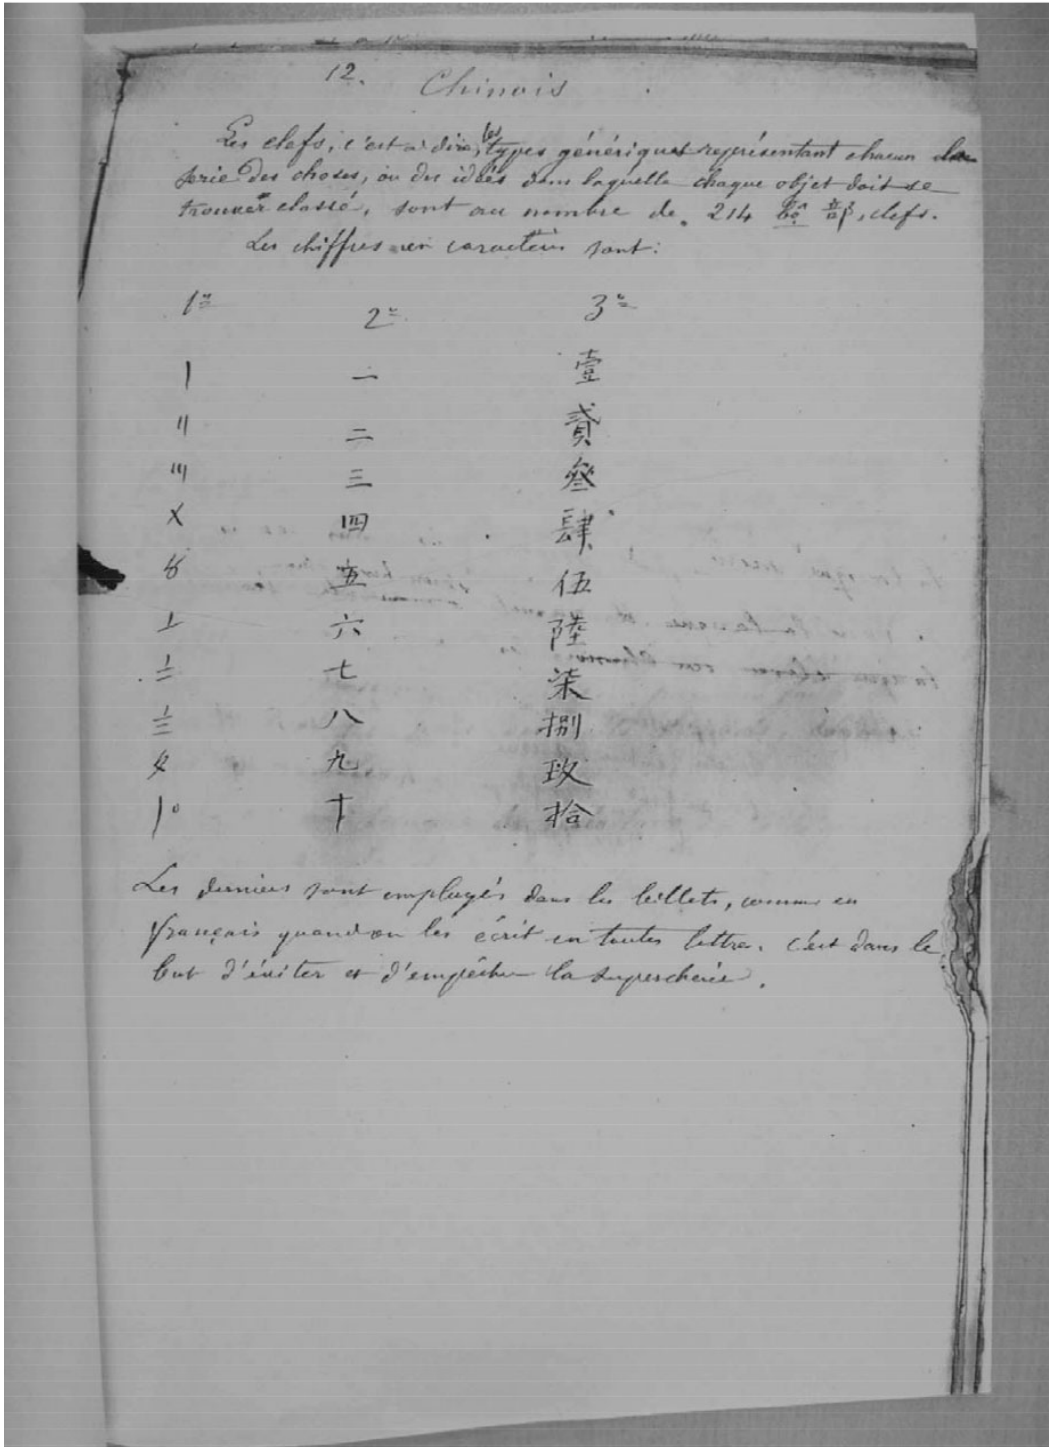 12. Chinois
Les clefs, c'est à dire, les types génériques représentant chacun
serie des choses, ou des idées dans laquelle chaque objet doit se
trouver classé, sont au nombre de 214 部, clefs.
Les chiffres en caractères sont:
1º 2º 3º
〡 一 壹
〢 二 貳
〣 三 叄
〤 四 肆
〥 五 伍
〦 六 陸
〧 七 柒
〨 八 捌
〩 九 玖
〡० 十 拾
Les derniers sont employés dans les billets, comme en
français quand on les écrit en toutes lettres. c'est dans le
but d'éviter et d'empêcher la supercherie.